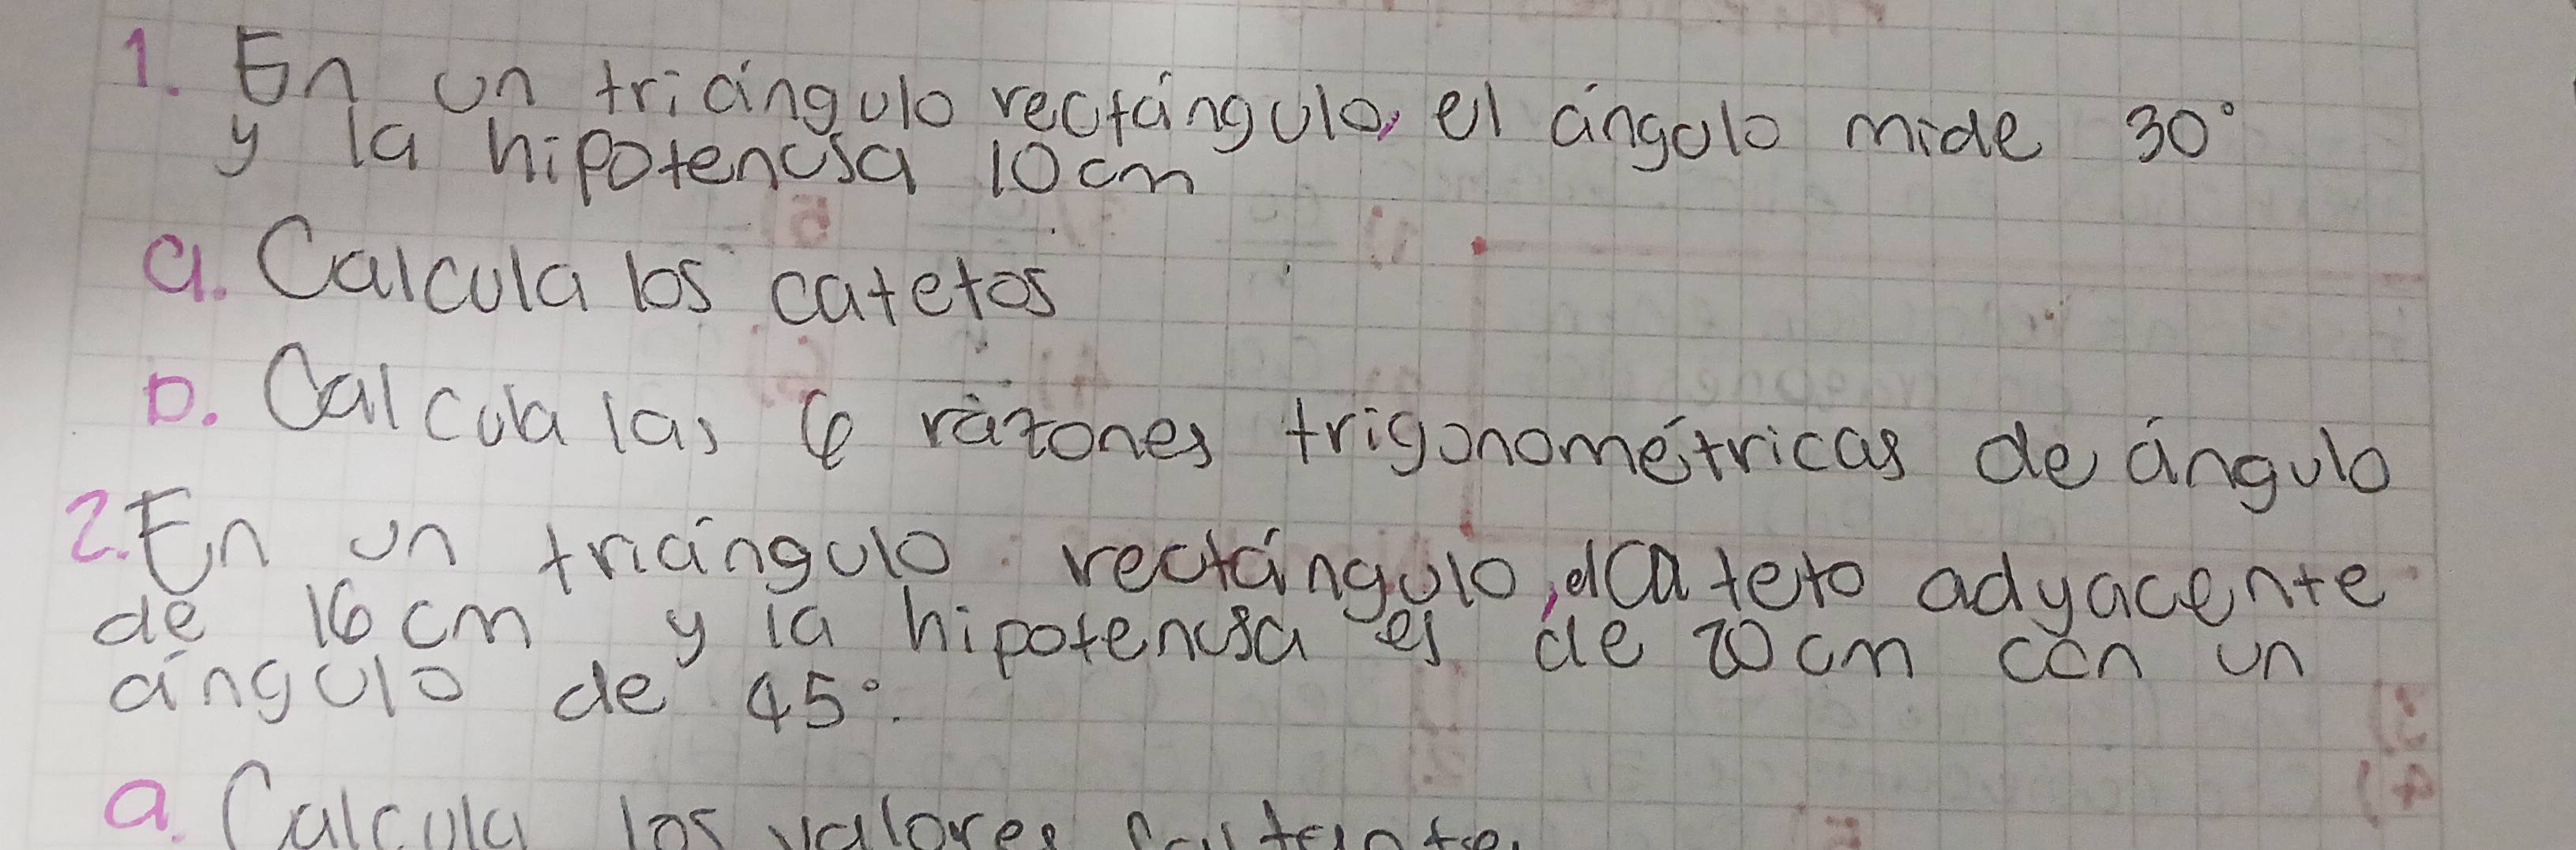 1. En un triángulo rectángulo, el ángulo mide 30°
y la hipotenusa 10cm
a. Calcula los catetos
b. Calcula las 6 razones trigonométricas de ángulo
2. En un triángulo rectángulo, el cateto adyacente
de 16 cm y la hipotenusa es de 20 cm con un
ángulo de 45°.
a. Calcula los valores faltante